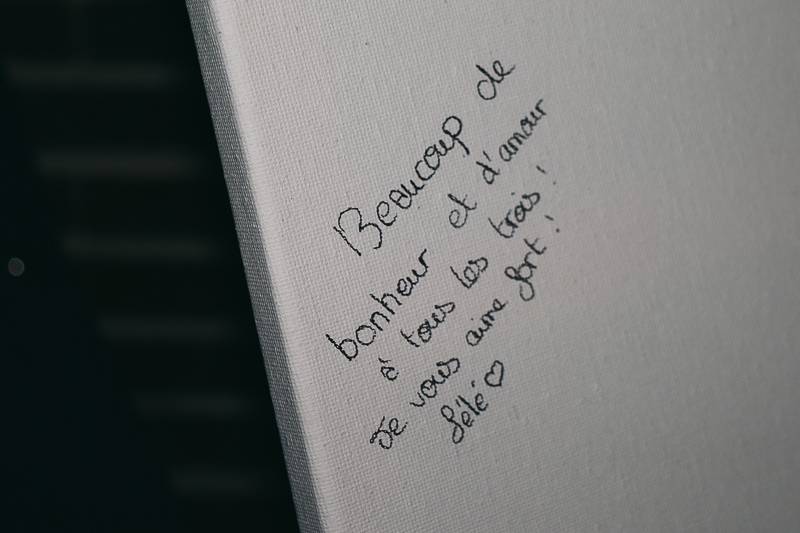 Beaucoup de
bonheur et d'amour
à tous les trois !
Je vous aime fort !
Lélé ♡